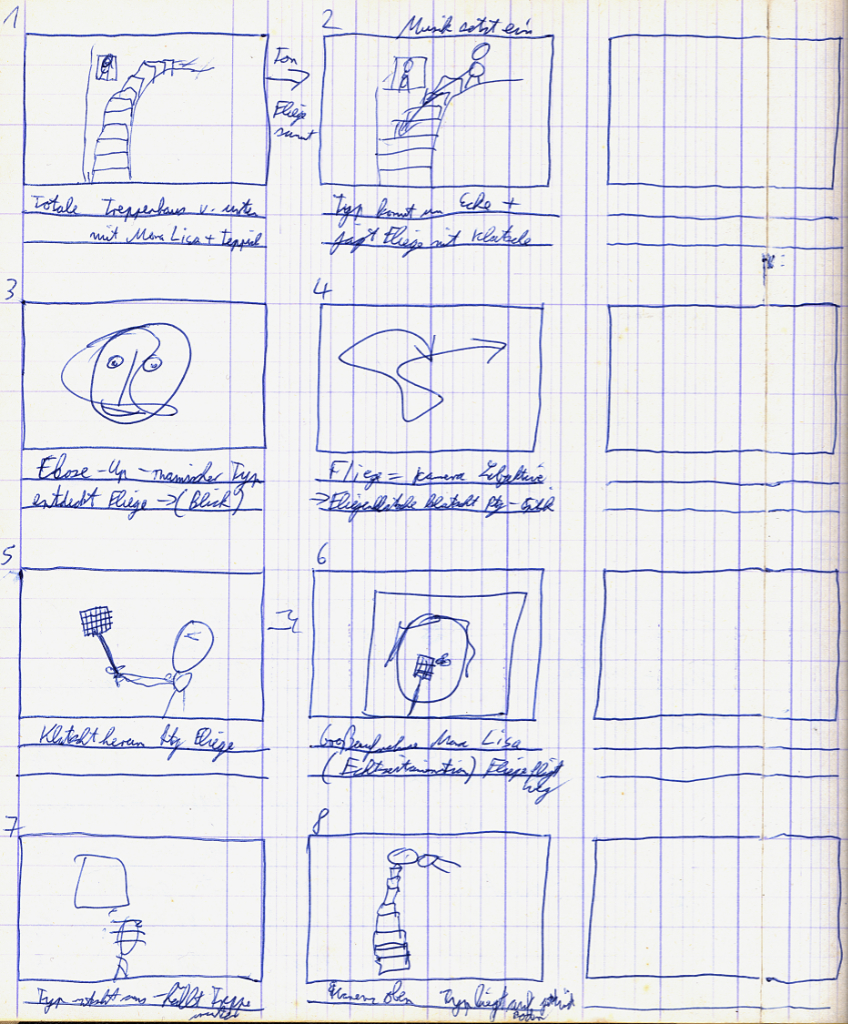 1
2
Musik setzt ein
Ton
Fliege
summt
Totale Treppenhaus v. unten
mit Mona Lisa + Teppich
Typ kommt um Ecke +
jagt Fliege mit Klatsche
3
4
Close-Up - manischer Typ
entdeckt Fliege → (Blick)
Fliege = Kamera
→ Fliegenklatsche klatscht
5
6
Klatscht herum Fliege
Großaufnahme Mona Lisa
Fliege fliegt
weg
7
8
Typ - fällt Treppe
runter
Kamera oben Typ liegt